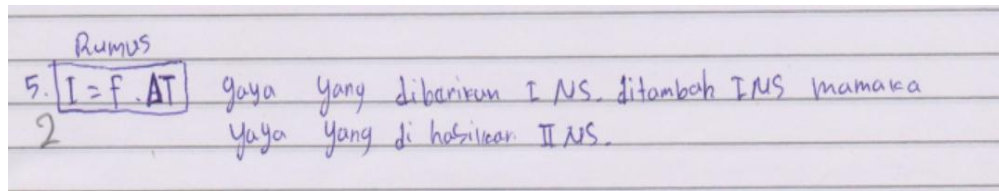 Rumus
5. I = F . ΔT gaya yang diberikan I NS. ditambah I NS mamaka
2 gaya yang di hasilkan II NS.